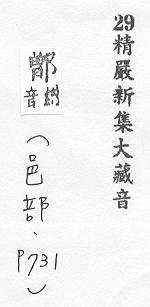 29精嚴新集大藏音
音
（邑部、P731）